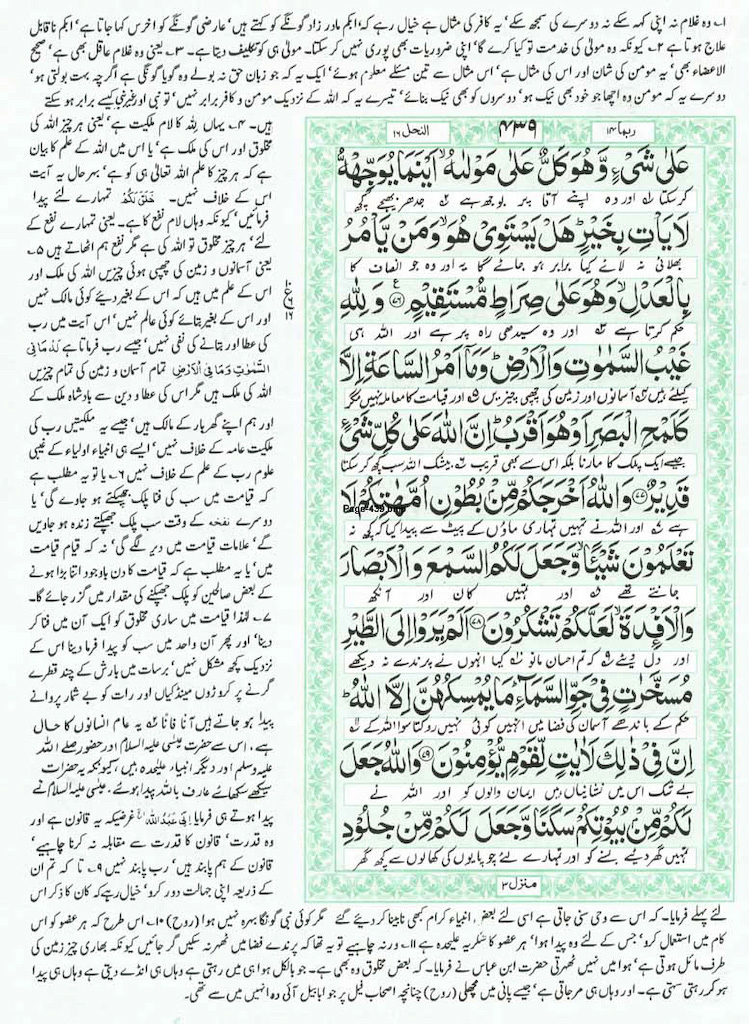 ۱۔ وہ غلام نہ اپنی کہہ سکے نہ دوسرے کی سمجھ سکے‘ یہ کافر کی مثال ہے خیال رہے کہ‘ ابکم مادر زاد گونگے کو کہتے ہیں‘ عارضی گونگے کو اخرس کہا جاتا ہے‘ ابکم ناقابل
علاج ہوتا ہے ۲۔ کیونکہ وہ مولیٰ کی خدمت تو کیا کرے گا‘ اپنی ضروریات بھی پوری نہیں کر سکتا۔ مولیٰ ہی کو تکلیف دیتا ہے۔ ۳۔ یعنی وہ غلام عاقل بھی ہے‘ صحیح
الاعضاء بھی‘ یہ مومن کی شان اور اس کی مثال ہے‘ اس مثال سے تین مسئلے معلوم ہوئے‘ ایک یہ کہ جو زبان حق نہ بولے وہ گویا گونگی ہے اگرچہ بہت بولتی ہو‘
دوسرے یہ کہ مومن وہ اچھا جو خود بھی نیک ہو‘ دوسروں کو بھی نیک بنائے‘ تیسرے یہ کہ اللہ کے نزدیک مومن و کافر برابر نہیں‘ تو نبی اور غیر نبی کیسے برابر ہو سکتے
ربما ۱۴ ۴۳۹ النحل ۱۶
عَلٰی شَیْءٍ وَّهُوَ كَلٌّ عَلٰی مَوْلٰىهُ ۙ اَیْنَمَا یُوَجِّهْهُّ
کر سکتا اور وہ اپنے آقا پر بوجھ ہے جدھر بھیجے کچھ
لَا یَاْتِ بِخَیْرٍ ؕ هَلْ یَسْتَوِیْ هُوَ ۙ وَ مَنْ یَّاْمُرُ
بھلائی نہ لائے کیا برابر ہو جائے گا یہ اور وہ جو انصاف کا
بِالْعَدْلِ ۙ وَ هُوَ عَلٰی صِرَاطٍ مُّسْتَقِیْمٍ ۠﴿۷۶﴾ وَ لِلّٰهِ
حکم کرتا ہے اور وہ سیدھی راہ پر ہے اور اللہ ہی
غَیْبُ السَّمٰوٰتِ وَ الْاَرْضِ ؕ وَ مَاۤ اَمْرُ السَّاعَةِ اِلَّا
کیلئے ہیں آسمانوں اور زمین کی چھپی چیزیں اور قیامت کا معاملہ نہیں مگر
كَلَمْحِ الْبَصَرِ اَوْ هُوَ اَقْرَبُ ؕ اِنَّ اللّٰهَ عَلٰی كُلِّ شَیْءٍ
جیسے ایک پلک کا مارنا بلکہ اس سے بھی قریب بیشک اللہ سب کچھ کر سکتا
قَدِیْرٌ ﴿۷۷﴾ وَ اللّٰهُ اَخْرَجَكُمْ مِّنْۢ بُطُوْنِ اُمَّهٰتِكُمْ لَا
Page-439.bmp
ہے اور اللہ نے تمہیں تمہاری ماؤں کے پیٹ سے پیدا کیا کہ کچھ نہ
تَعْلَمُوْنَ شَیْـًٔا ۙ وَّ جَعَلَ لَكُمُ السَّمْعَ وَ الْاَبْصَارَ
جانتے تھے اور تمہیں کان اور آنکھ
وَ الْاَفْـِٕدَةَ ۙ لَعَلَّكُمْ تَشْكُرُوْنَ ﴿۷۸﴾ اَلَمْ یَرَوْا اِلَی الطَّیْرِ
اور دل دیئے کہ تم احسان مانو کیا انہوں نے پرندے نہ دیکھے
مُسَخَّرٰتٍ فِیْ جَوِّ السَّمَآءِ ؕ مَا یُمْسِكُهُنَّ اِلَّا اللّٰهُ ؕ
حکم کے باندھے آسمان کی فضا میں انہیں کوئی نہیں روکتا سوا اللہ کے
اِنَّ فِیْ ذٰلِكَ لَاٰیٰتٍ لِّقَوْمٍ یُّؤْمِنُوْنَ ﴿۷۹﴾ وَ اللّٰهُ جَعَلَ
بے شک اس میں نشانیاں ہیں ایمان والوں کو اور اللہ نے
لَكُمْ مِّنْۢ بُیُوْتِكُمْ سَكَنًا وَّ جَعَلَ لَكُمْ مِّنْ جُلُوْدِ
تمہیں گھر دیئے بسنے کو اور تمہارے لئے چوپایوں کی کھالوں سے کچھ گھر
منزل ۳
ہیں۔ ۴۔ یہاں للہ کا لام ملکیت ہے‘ یعنی ہر چیز اللہ کی
مخلوق اور اس کی ملک ہے‘ یا اس میں اللہ کے علم کا بیان
ہے کہ ہر چیز کا علم اللہ تعالیٰ ہی کو ہے‘ بہرحال یہ آیت
اس کے خلاف نہیں۔ خَلَقَ لَکُمْ تمہارے لئے پیدا
فرمائیں‘ کیونکہ وہاں لام نفع کا ہے۔ یعنی تمہارے نفع کے
لئے‘ ہر چیز مخلوق تو اللہ کی ہے مگر نفع ہم اٹھاتے ہیں ۵۔
یعنی آسمانوں و زمین کی چھپی ہوئی چیزیں اللہ کی ملک اور
اس کے علم میں ہیں کہ اس کے بغیر دیئے کوئی مالک نہیں
اور اس کے بغیر بتائے کوئی عالم نہیں‘ اس آیت میں رب
کی عطا اور بتانے کی نفی نہیں‘ جیسے رب فرماتا ہے لَهٗ مَا فِی
السَّمٰوٰتِ وَمَا فِی الْاَرْضِ تمام آسمان و زمین کی تمام چیزیں
اللہ کی ملک ہیں مگر اس کی عطا و دین سے بادشاہ ملک کے
اور ہم اپنے گھر بار کے مالک ہیں‘ جیسے یہ ملکیتیں رب کی
ملکیت عامہ کے خلاف نہیں‘ ایسے ہی انبیاء اولیاء کے غیبی
علوم رب کے علم کے خلاف نہیں ۶۔ یا تو یہ مطلب ہے
کہ قیامت میں سب کی فنا پلک جھپکتے ہو جاوے گی‘ یا
دوسرے نفخہ کے وقت سب پلک جھپکتے زندہ ہو جاویں
گے‘ علامات قیامت میں دیر لگے گی‘ نہ کہ قیام قیامت
میں‘ یا یہ مطلب ہے کہ قیامت کا دن باوجود اتنا بڑا ہونے
کے بعض صالحین کو پلک جھپکنے کی مقدار میں گزر جائے گا۔
۷۔ لہٰذا قیامت میں ساری مخلوق کو ایک آن میں فنا کر
دینا‘ اور پھر آن واحد میں سب کو پیدا فرما دینا اس کے
نزدیک کچھ مشکل نہیں‘ برسات میں بارش کے چند قطرے
گرنے پر کروڑوں مینڈکیاں اور رات کو بے شمار پروانے
پیدا ہو جاتے ہیں آناً فاناً یہ عام انسانوں کا حال
ہے، اس سے حضرت عیسیٰ علیہ السلام اور حضور صلے اللہ
علیہ وسلم اور دیگر انبیاء علیحدہ ہیں، کیونکہ یہ حضرات
سیکھے سکھائے عارف باللہ پیدا ہوئے۔ عیسیٰ علیہ السلام نے
پیدا ہوتے ہی فرمایا اِنِّیْ عَبْدُ اللّٰہِ غرضیکہ یہ قانون ہے اور
وہ قدرت‘ قانون کا قدرت سے مقابلہ نہ کرنا چاہیے‘
قانون کے ہم پابند ہیں‘ رب پابند نہیں ۹۔ تا کہ تم ان
کے ذریعہ اپنی جہالت دور کرو‘ خیال رہے کہ کان کا ذکر اس
لئے پہلے فرمایا۔ کہ اس سے وحی سنی جاتی ہے اسی لئے بعض انبیاء کرام بھی نابینا کر دیئے گئے مگر کوئی نبی گونگا بہرہ نہیں ہوا (روح) ۱۰۔ اس طرح کہ ہر عضو کو اس
کام میں استعمال کرو‘ جس کے لئے وہ پیدا ہوا‘ ہر عضو کا شکریہ علیحدہ ہے ۱۱۔ ورنہ چاہیے تو یہ تھا کہ پرندے فضا میں ٹھہر نہ سکیں گر جائیں کیونکہ بھاری چیز زمین کی
طرف مائل ہوتی ہے‘ ہوا میں نہیں ٹھہرتی حضرت ابن عباس نے فرمایا۔ کہ بعض مخلوق وہ بھی ہے۔ جو بالکل ہوا ہی میں رہتی ہے وہاں ہی انڈے دیتی ہے وہاں ہی پیدا
ہو کر رہتی سہتی ہے۔ اور وہاں ہی مر جاتی ہے‘ جیسے پانی میں مچھلی (روح) چنانچہ اصحاب فیل پر جو ابابیل آئی وہ انہیں میں سے تھی۔